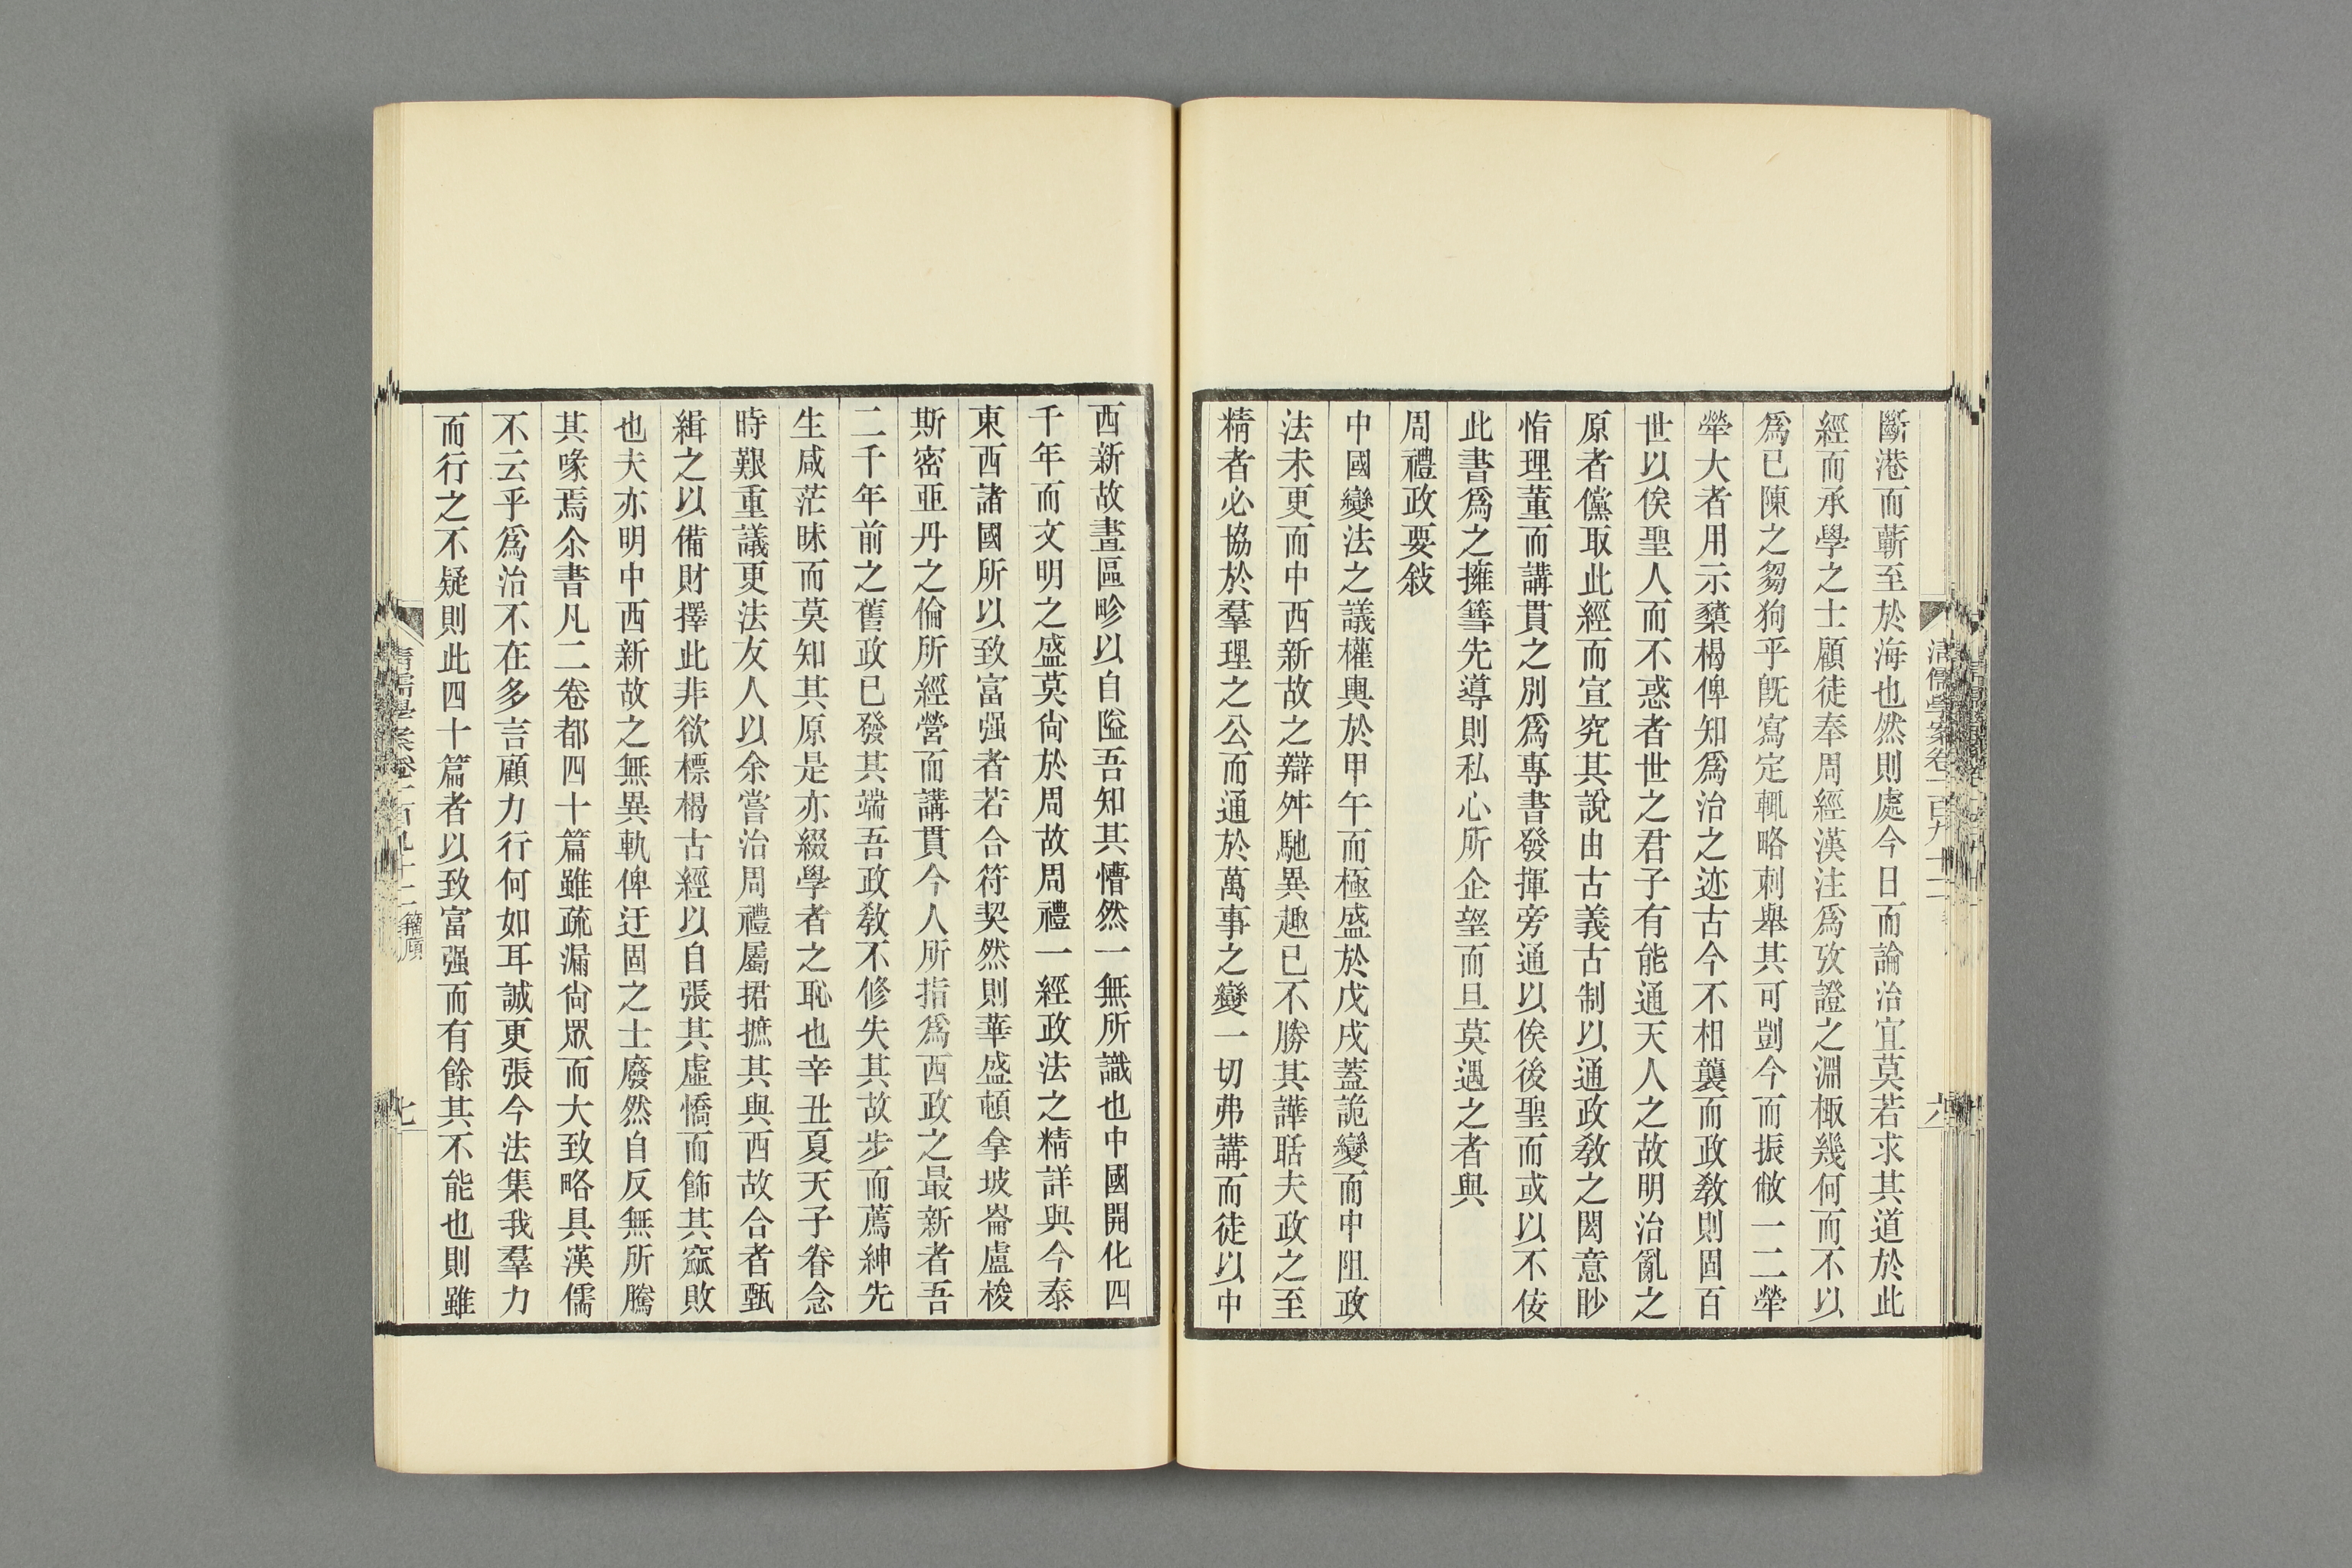 斷港而蘄至於海也然則處今日而論治宜莫若求其道於此
經而承學之士顧徒奉周經漢注爲攷證之淵棷幾何而不以
爲已陳之芻狗乎旣寫定輒略刺舉其可剴今而振敝一二犖
犖大者用示櫫楬俾知爲治之迹古今不相襲而政敎則固百
世以俟聖人而不惑者世之君子有能通天人之故明治亂之
原者儻取此經而宣究其說由古義古制以通政敎之閎意眇
恉理董而講貫之別爲專書發揮旁通以俟後聖而或以不佞
此書爲之擁篲先導則私心所企望而旦莫遇之者與
周禮政要敍
中國變法之議權輿於甲午而極盛於戊戌蓋詭變而中阻政
法未更而中西新故之辯舛馳異趣已不勝其譁聒夫政之至
精者必協於羣理之公而通於萬事之變一切弗講而徒以中
西新故畫區畛以自隘吾知其懵然一無所識也中國開化四
千年而文明之盛莫尙於周故周禮一經政法之精詳與今泰
東西諸國所以致富强者若合符契然則華盛頓拿坡崙盧梭
斯密亚丹之倫所經營而講貫今人所指爲西政之最新者吾
二千年前之舊政已發其端吾政敎不修失其故步而薦紳先
生咸茫昧而莫知其原是亦綴學者之恥也辛丑夏天子眷念
時艱重議更法友人以余嘗治周禮屬捃摭其與西故合者甄
緝之以備財擇此非欲標楬古經以自張其虛憍而飾其窳敗
也夫亦明中西新故之無異軌俾迂固之士廢然自反無所騰
其喙焉余書凡二卷都四十篇雖疏漏尙眾而大致略具漢儒
不云乎爲治不在多言顧力行何如耳誠更張今法集我羣力
而行之不疑則此四十篇者以致富强而有餘其不能也則雖
清儒學案卷一百九十二
六
清儒學案卷一百九十二 籀廎
七